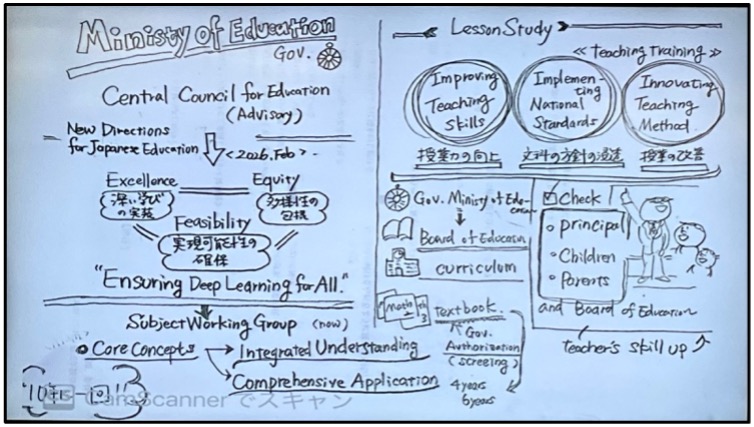 Ministy of Education
Gov.
Central Council for Education
(Advisory)
New Directions
for Japanese Education
<2026, Feb>
Excellence
Equity
深い学び
の実装
多様性の
包摂
Feasibility
実現可能性の
確保
"Ensuring Deep Learning for All."
Subject Working Group (now)
Core Concepts
Integrated Understanding
Comprehensive Application
10年一回!!
CamScanner でスキャン
Lesson Study
≪ Teaching Training ≫
Improving
Teaching
Skills
Implemen-
ting
National
Standards
Innovating
Teaching
Method
授業力の向上
文科の方針の浸透
授業の改善
Gov. Ministy of Edu-
Board of Education
curriculum
Math
3
textbook
Gov.
Authorization
(screeing)
4 years
6 years
Check
principal
Children
Parents
and Board of Education
teacher's skill up